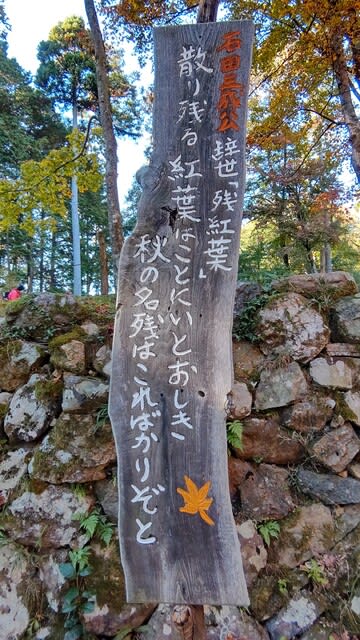 石田三成公
辞世「残紅葉」
散り残る紅葉はことにいとおしき
秋の名残はこればかりぞと